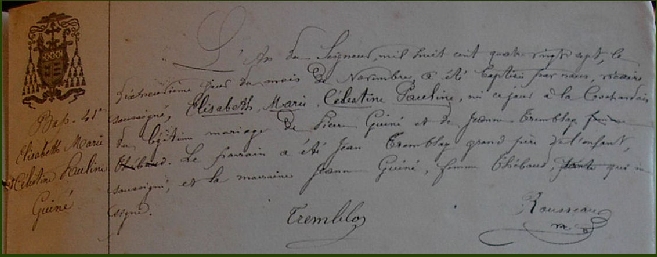 Bap. 45
Elisabeth Marie
Célestine Pauline
Guiné
L'An du Seigneur, mil huit cent quatre vingt sept, le
jour du mois de Novembre a été baptisée par nous, vicaire
soussigné, Elisabeth Marie Célestine Pauline, née ce jour à la
du légitime mariage de Pierre Guiné et de Jeanne Tremblay
Thébaud. Le parrain a été Jean Tremblay grand père de l'enfant,
soussigné, et la marraine Jeanne Guiné, femme Thébaud, qui n'a
signé.
Tremblay
Rousseau